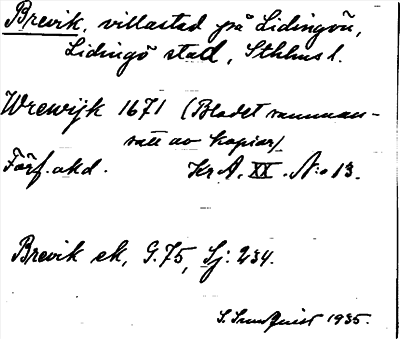 Brevik, villastad på Lidingön,
Lidingö stad, Sthlms l.
Wrewijk 1671 (Bladet samman-
satt av kopiar)
Förf. akd. KrA. XX. N:o 13.
Brevik ek, G.75, Sj: 234.
S. Sundquist 1935.